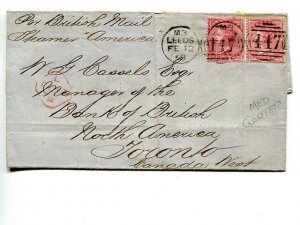 Per British Mail
Steamer America
M3
LEEDS
FE 12
447
W. G. Cassels Esqr
Manager of the
Bank of British
North America
Toronto
Canada West
MED
GARTER